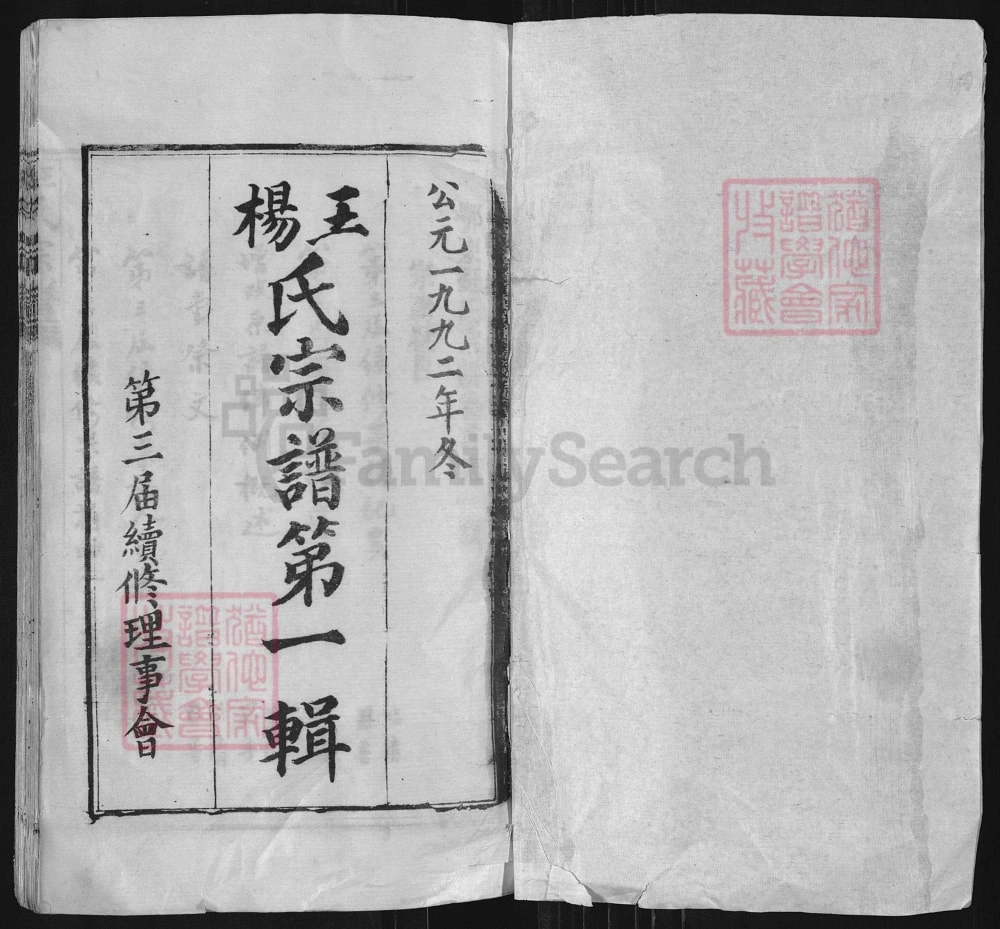 公元一九九二年冬
王楊氏宗譜第一輯
第三届續修理事會
FamilySearch
譜學會
收藏
譜學會